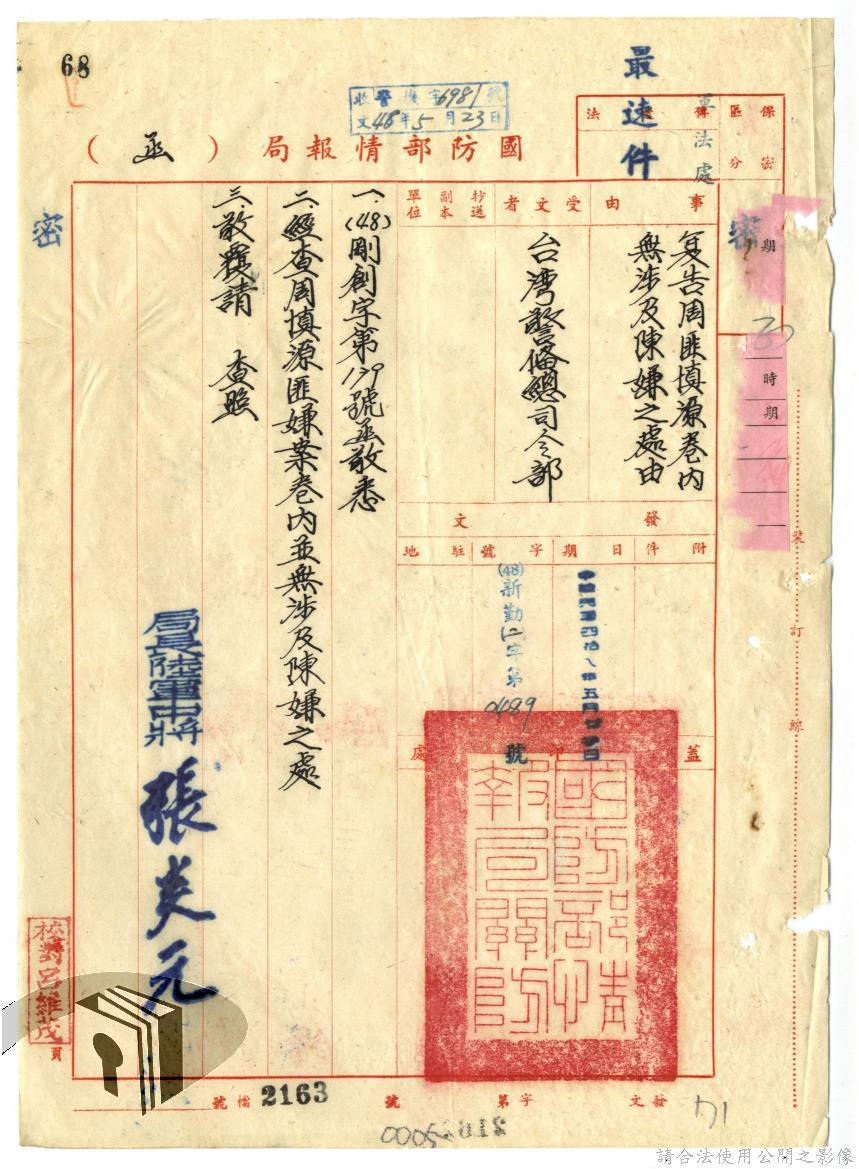 68
最速件
軍法處
收 警 字6981號
文 48年5月23日
國防部情報局（函）
保密區分
密
傳 法
期
時期
事由
复告周匪慎源卷内
無涉及陳嫌之處由
受文者
台灣警俻總司令部
抄送副本單位
發文
附件
日期
字號
駐地
(48)新勤(二)字第0489號
蓋印處
國防部情報局關防
一、(48)剛創字第139號函敬悉
二、經查周慎源匪嫌案卷内並無涉及陳嫌之處
三、敬覆請　查照
局長陸軍中將 張炎元
密
校對呂維茂
頁
裝訂線
發文 字第 號
檔號 2163
174
請合法使用公開之影像